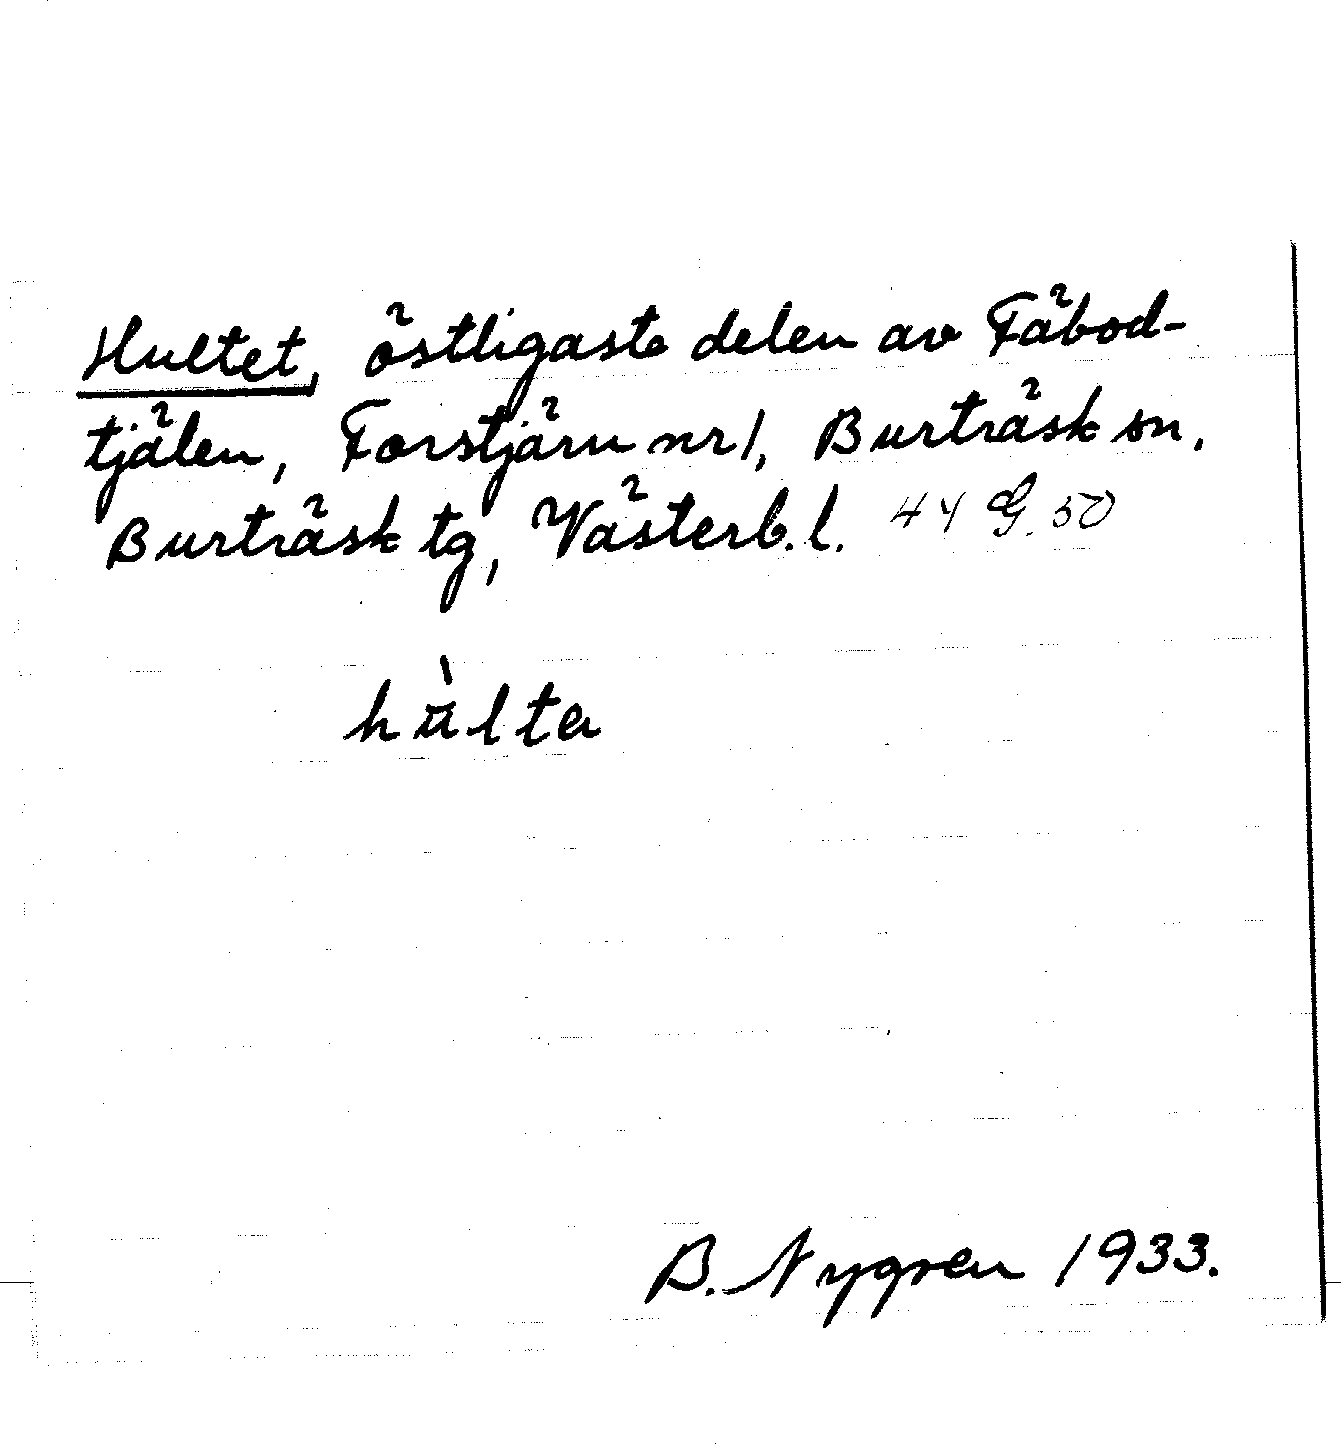 Hultet, östligaste delen av Fäbod-
tjälen, Forstjärn nr 1, Burträsk sn,
Burträsk tg, Västerb. l. 44 G. 50
hùlta
B. Nygren 1933.